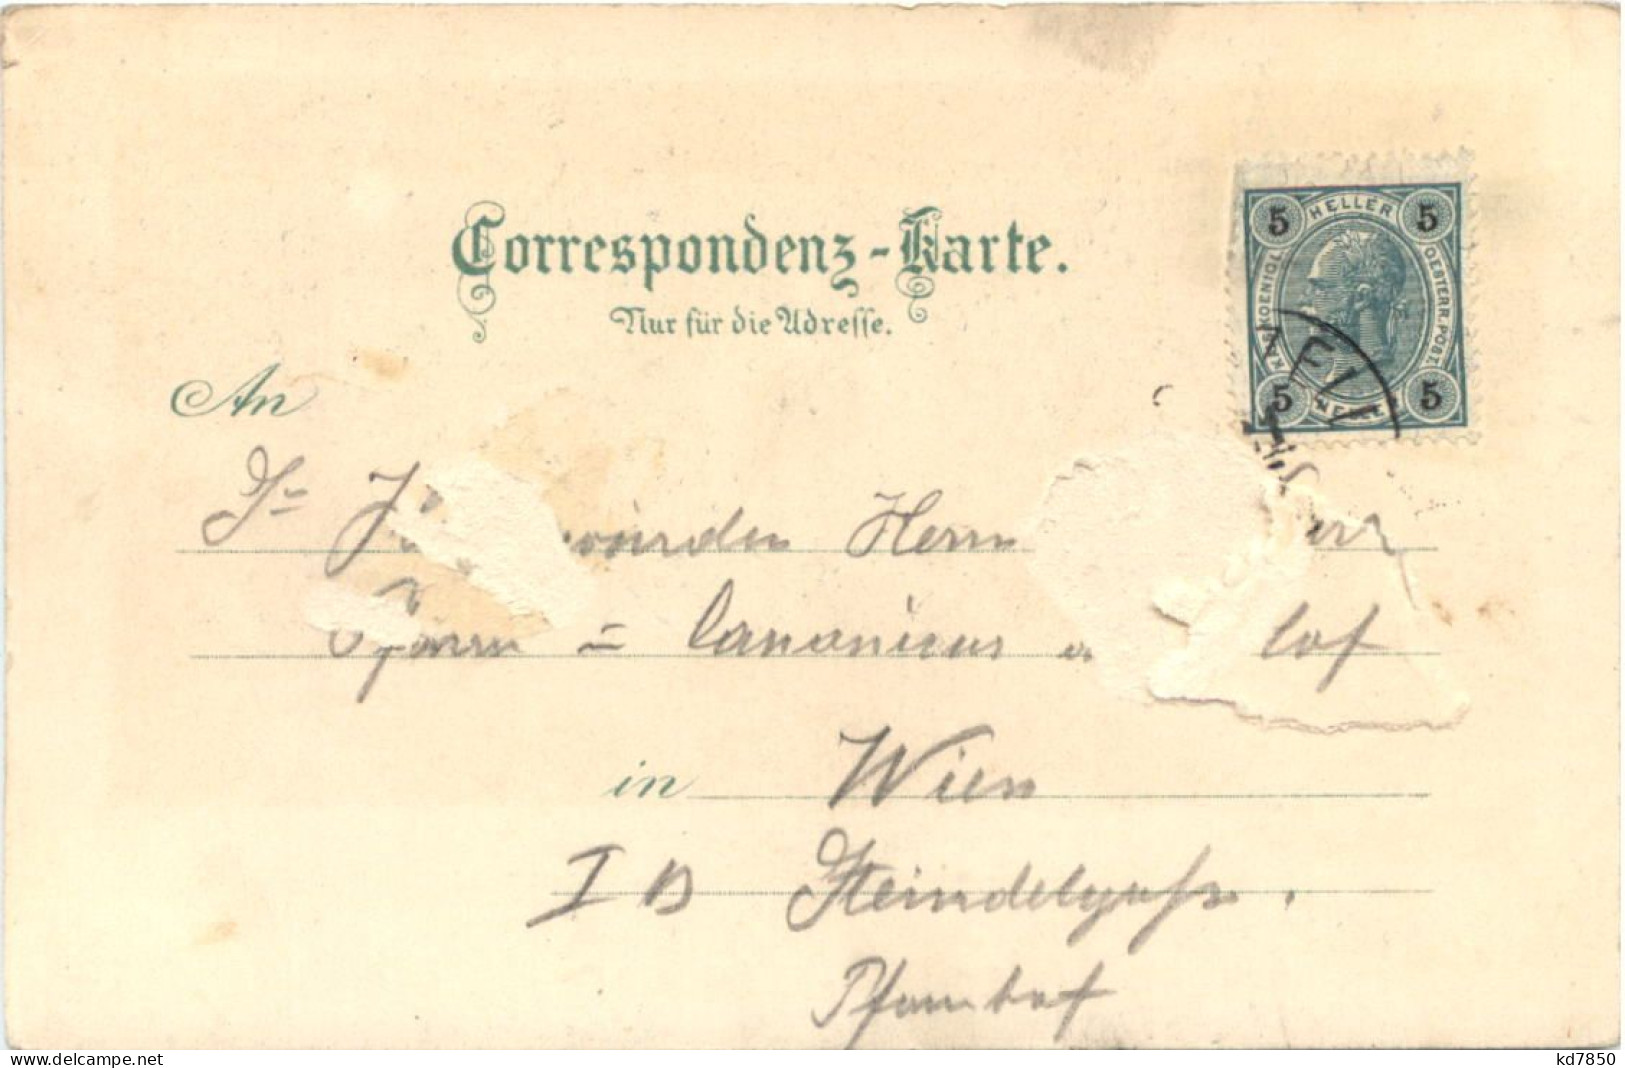 Correspondenz-Karte.
Nur für die Adresse.
5 HELLER 5
KAIS. KOENIGL. OESTERR. POST.
5 HELLER 5
ZELL
An
Sr würden Herrn
Pfarrer = Canonicus
in Wien
I Steindelgasse.
Pfarrhof
www.delcampe.net
kd7850